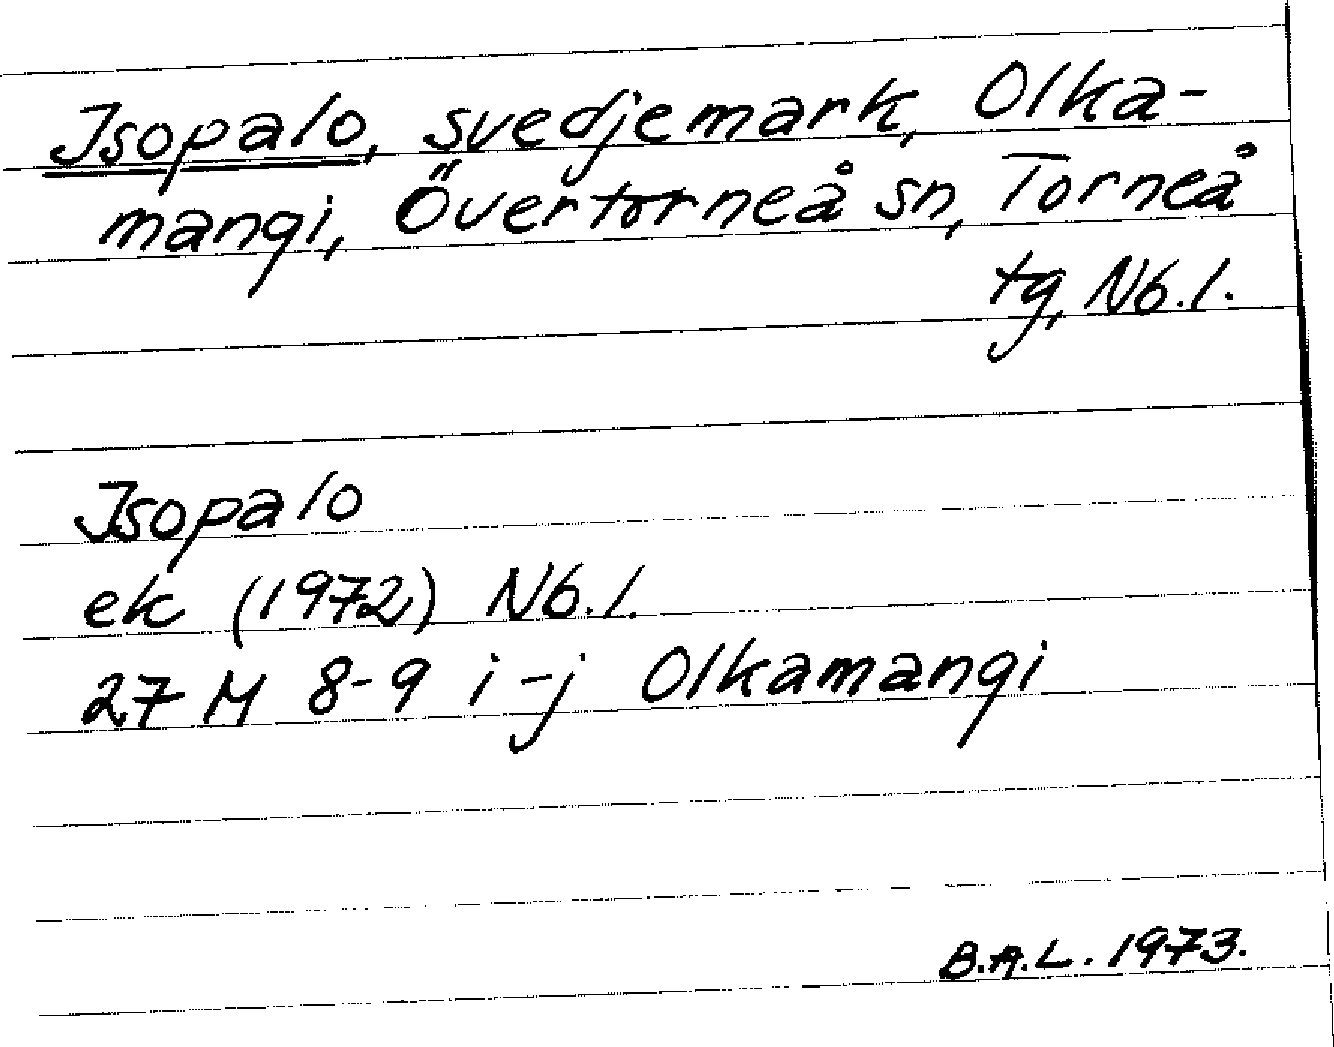 Isopalo, svedjemark, Olka-
mangi, Övertorneå sn, Torneå
tg, Nb.l.
Isopalo
ek (1972) Nb.l.
27 M 8-9 i-j Olkamangi
B.A.L. 1973.